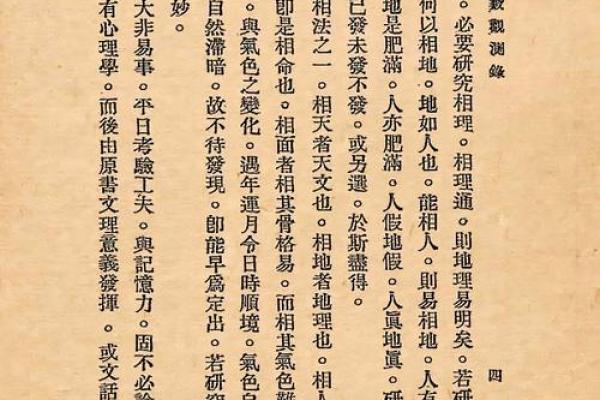 觀測錄
四
。必要研究相理。相理通。則地理易明矣。若研
何以相地。地如人也。能相人。則易相地。人有
地是肥滿。人亦肥滿。人假地假。人眞地眞。研
已發未發不發。或另選。於斯盡得。
相法之一。相天者天文也。相地者地理也。相人
卽是相命也。相面者相其骨格易。而相其氣色難
。與氣色之變化。遇年運月令日時順境。氣色自
自然滯暗。故不待發現。卽能早爲定出。若硏究
妙。
大非易事。平日考驗工夫。與記憶力。固不必論
有心理學。而後由原書文理意義發揮。或文話